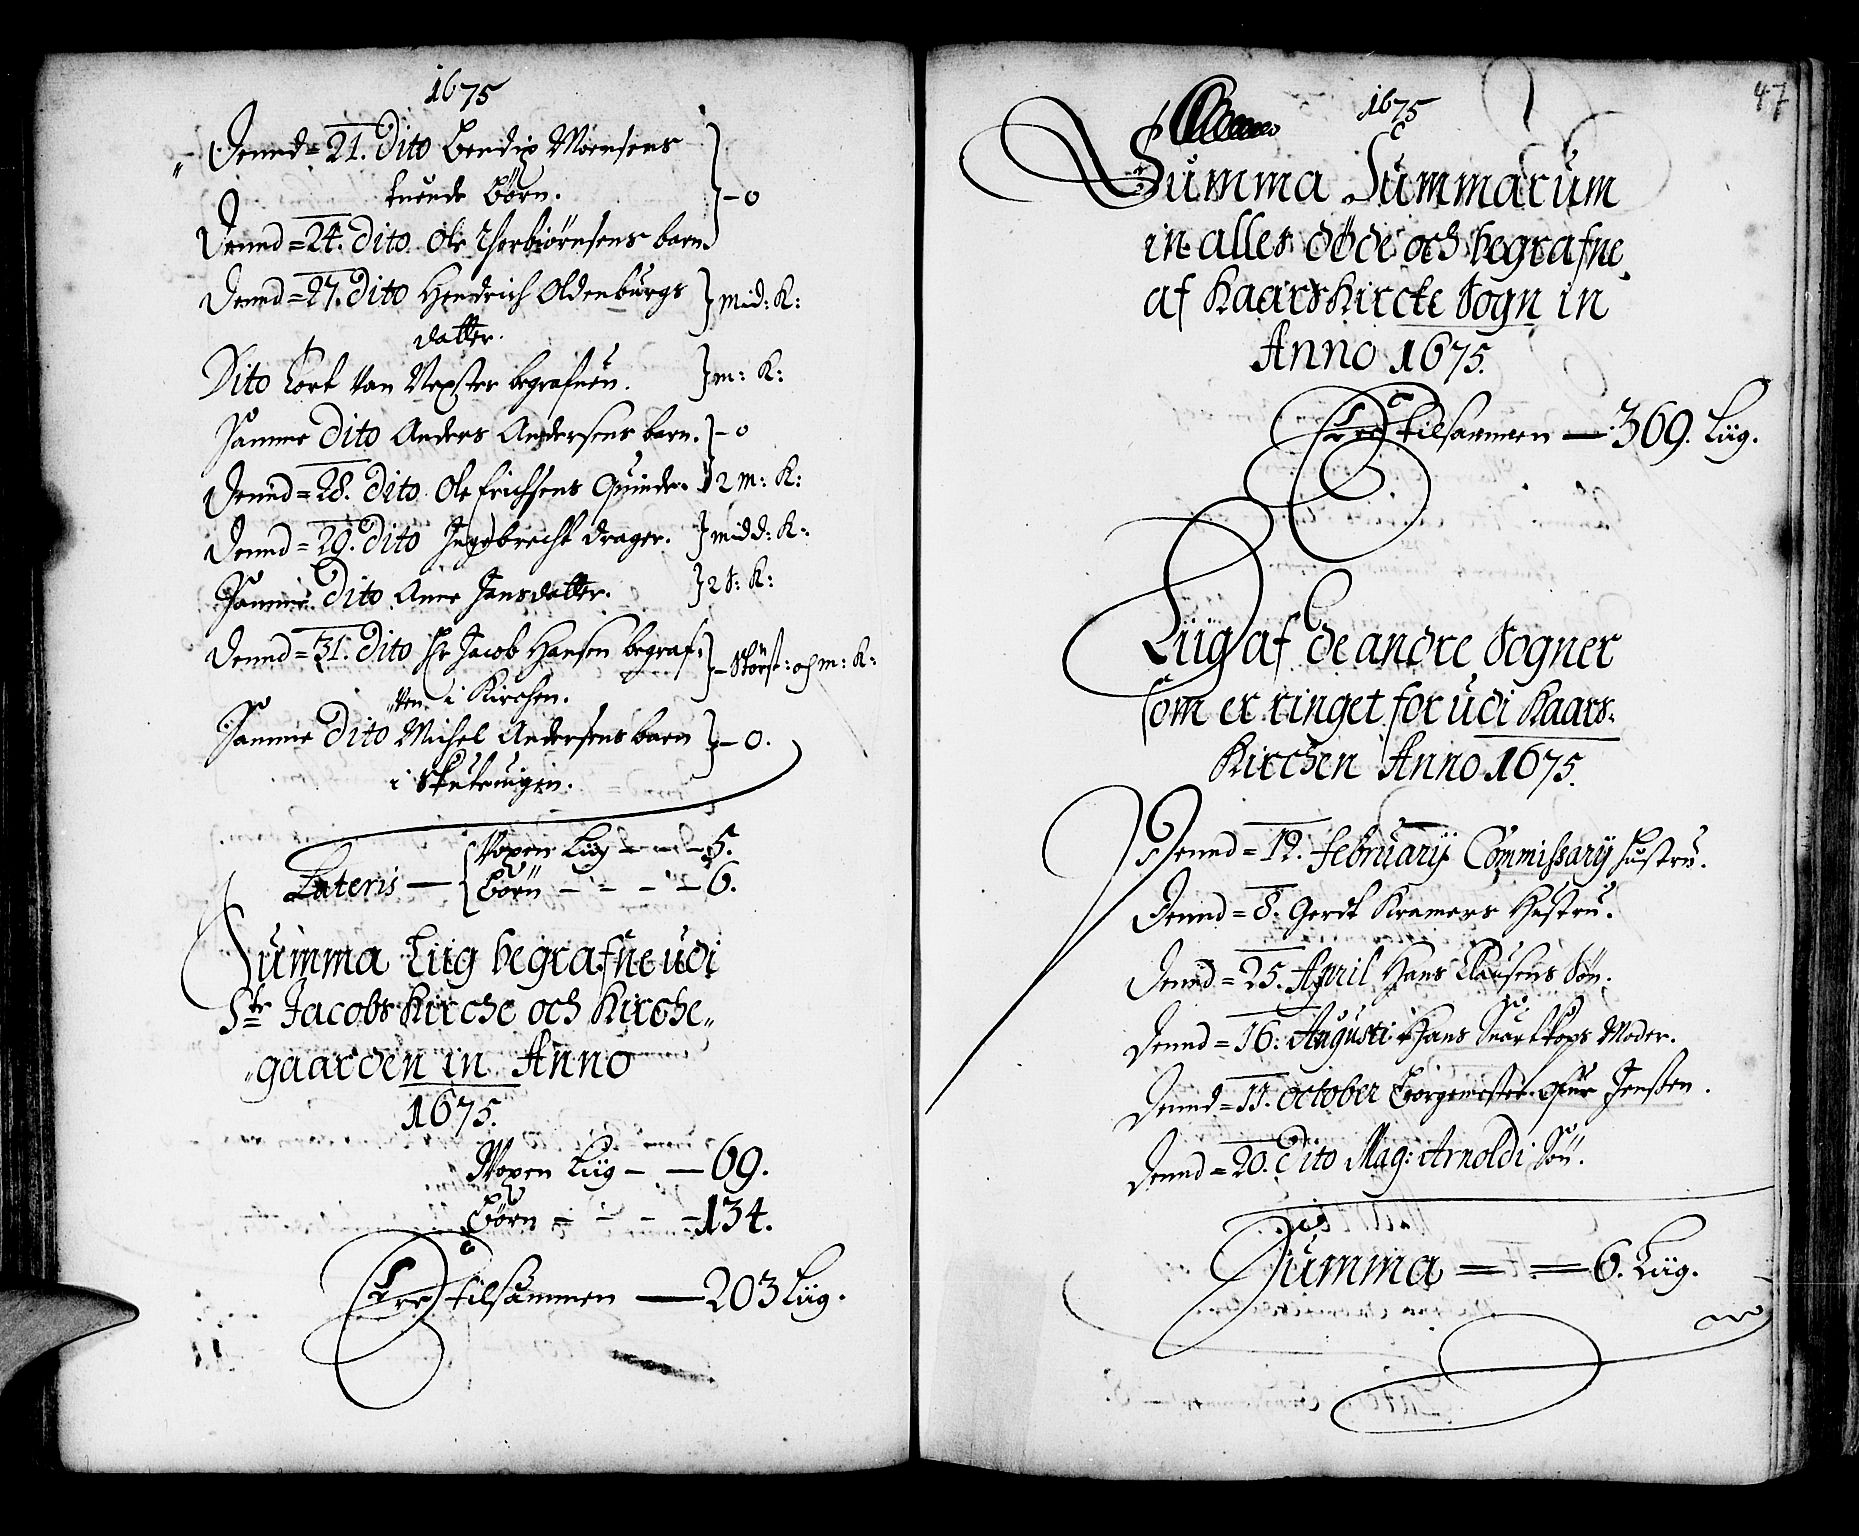 1675
Dennd = 21. Dito Bendix Monsens
tuende Börn. } - 0
Dennd = 24. Dito. Ole Therbiörnsens barn.
Dennd = 27. Dito Hendrich Oldenburgs } mid: K:
datter.
Dito Cort Van Vexster begrafuen. } m: K:
Samme Dito Anders Andersens barn. } - 0
Dennd = 28. Dito. Ole Erichsens Quinde. } 2 m: K:
Dennd = 29. Dito Ingebrecht Drager. } midd: K:
Samme Dito Anne Jansdatter. } 2 S: K:
Dennd = 31. Dito Hr Jacob Hansen begraf= } - Störst: og m: K:
"ven i Kirchen.
Samme Dito Michel Andersens barn } - 0.
i Skuteuigen.
Lateris — { Voxen Liig - - - 5.
Börn - - - - 6.
Summa Liig begrafne udi
Ste Jacobs Kirche och Kirche„
„gaarden in Anno
1675.
Woxen Liig - — 69.
Börn - - - - 134.
Err tilsammen — 203 Liig.
47
1675
Summa Summarum
in alles döde och begrafne
af Kaarskircke Sogn in
Anno 1675.
Err tilsammen — 369. Liig.
Liig af de andre Sogner
som er ringet for udi Kaars=
Kirchen Anno 1675.
Dennd = 12. February Commissary Hustru.
Dennd = 8. Gerdt Kramers Hustru.
Dennd = 25. April Hans Clausens Sön.
Dennd = 16. Augusti Hans Suartkops Moder.
Dennd = 11. October Borgemester Ofue Jenssen.
Dennd = 20. Dito Mag: Arnoldi Sön.
Summa = = 6. Liig.